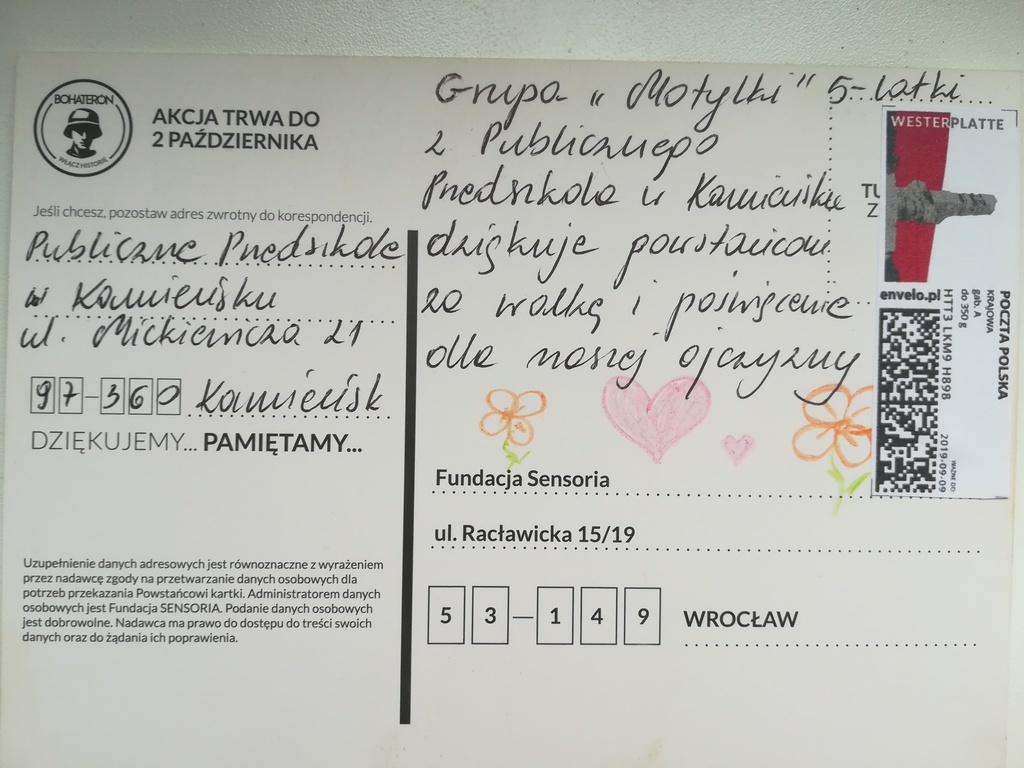 BOHATERON
WŁĄCZ HISTORIĘ
AKCJA TRWA DO
2 PAŹDZIERNIKA
Jeśli chcesz, pozostaw adres zwrotny do korespondencji.
Publiczne Przedszkole
w Kamieńsku
ul. Mickiewicza 21
97-360 Kamieńsk
DZIĘKUJEMY... PAMIĘTAMY...
Uzupełnienie danych adresowych jest równoznaczne z wyrażeniem
przez nadawcę zgody na przetwarzanie danych osobowych dla
potrzeb przekazania Powstańcowi kartki. Administratorem danych
osobowych jest Fundacja SENSORIA. Podanie danych osobowych
jest dobrowolne. Nadawca ma prawo do dostępu do treści swoich
danych oraz do żądania ich poprawienia.
Grupa „Motylki" 5-latki
z Publicznego
Przedszkola w Kamieńsku
dziękuje powstańcom
za walkę i poświęcenie
dla naszej ojczyzny
Fundacja Sensoria
ul. Racławicka 15/19
53-149 WROCŁAW
TU
Z
WESTERPLATTE
envelo.pl
POCZTA POLSKA
KRAJOWA
gab. A
do 350 g
HTT3 LKM9 H898
WAŻNE DO:
2019-09-09